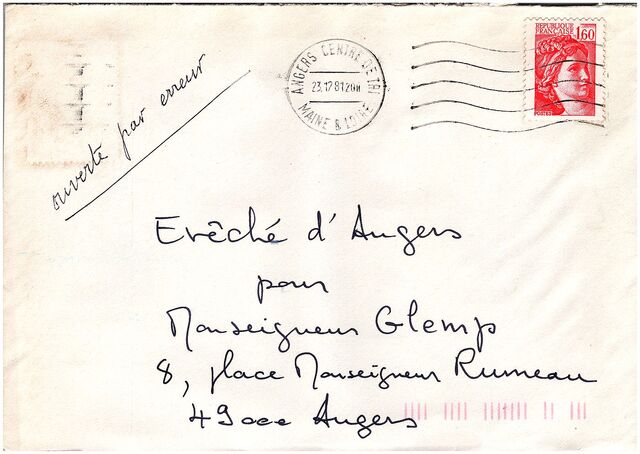 REPUBLIQUE
FRANÇAISE 1,60
POSTES
ANGERS CENTRE DE TRI
23.12 81 20H
MAINE & LOIRE
ouverte par erreur
Evêché d'Angers
pour
Monseigneur Glemp
8, place Monseigneur Rumeau
49000 Angers